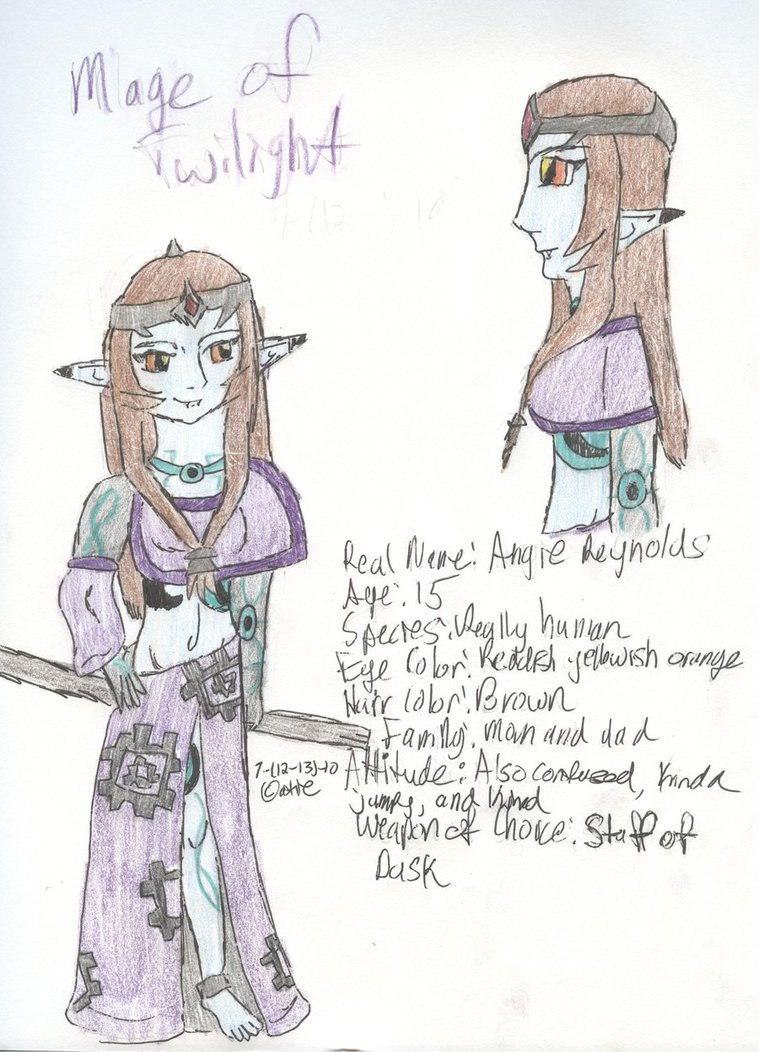 Mage of
Twilight
Real Name: Angie Reynolds
Age: 15
Species: Really human
Eye Color: Reddish yellowish orange
Hair Color: Brown
Family: Mom and dad
Attitude: Also confused, kinda
jumpy, and kind
Weapon of Choice: Staff of
Dusk
7-(12-13)-10